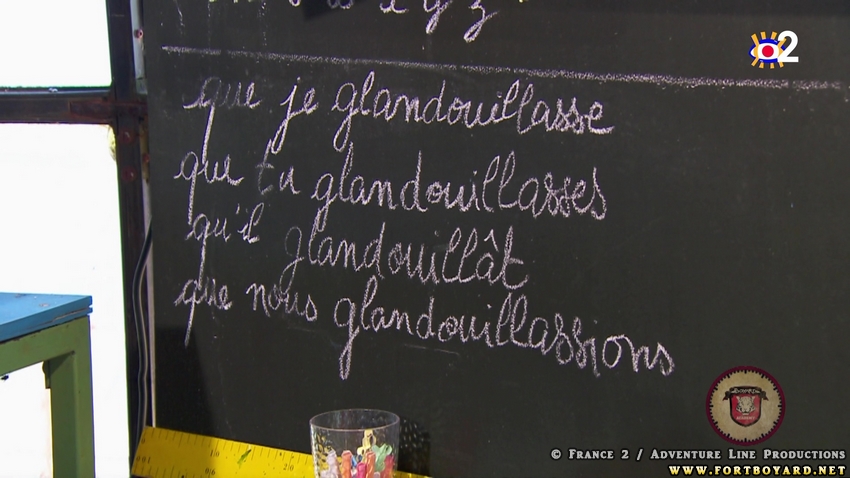 x y z
2
que je glandouillasse
que tu glandouillasses
qu'il glandouillât
que nous glandouillassions
© France 2 / Adventure Line Productions
www.fortboyard.net